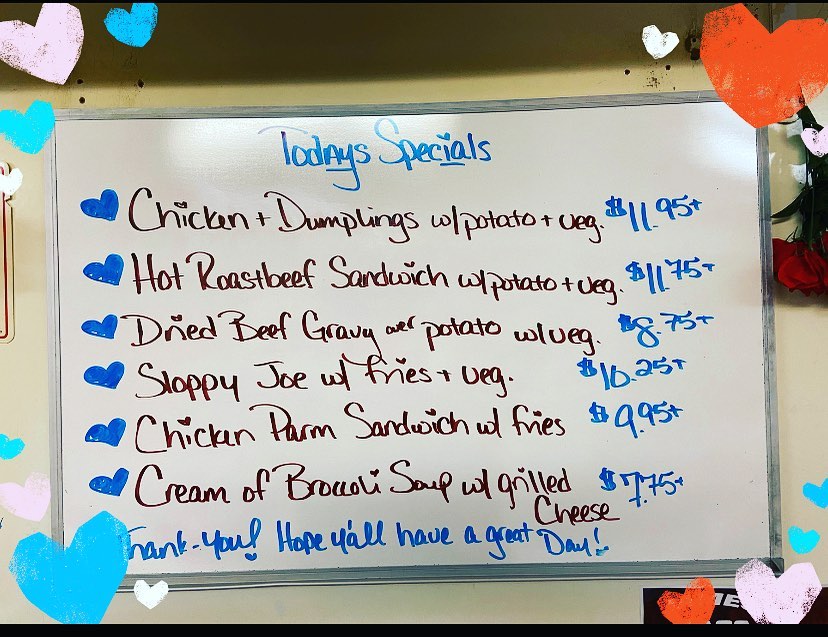 Todays Specials
Chicken + Dumplings w/potato + veg. $11.95+
Hot Roastbeef Sandwich w/potato + veg. $11.75+
Dried Beef Gravy over potato w/veg. $8.75+
Sloppy Joe w/ fries + veg. $10.25+
Chicken Parm Sandwich w/ fries $9.95+
Cream of Broccoli Soup w/ grilled $7.75+
Cheese
Thank-You! Hope y'all have a great Day!